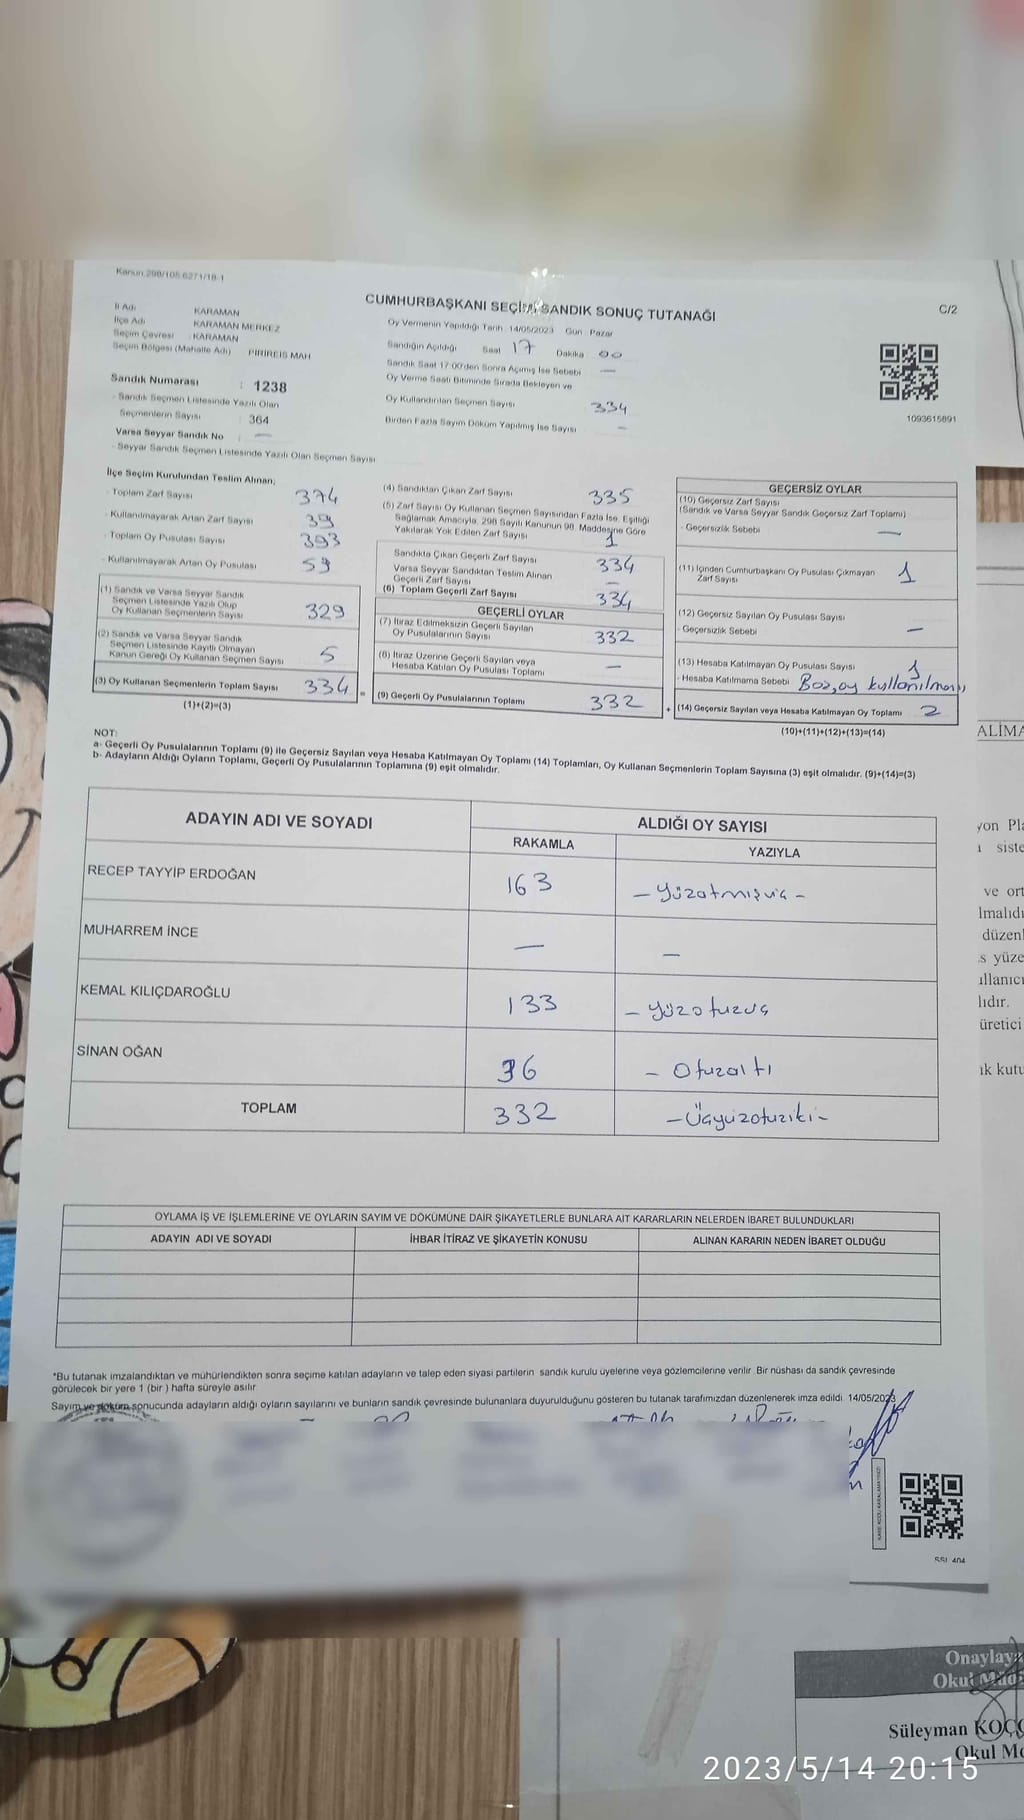 Kanun:298/105.6271/18-1
CUMHURBAŞKANI SEÇİMİ SANDIK SONUÇ TUTANAĞI
C/2
İl Adı KARAMAN
İlçe Adı KARAMAN MERKEZ
Seçim Çevresi : KARAMAN
Seçim Bölgesi (Mahalle Adı) PİRİREİS MAH
Sandık Numarası : 1238
- Sandık Seçmen Listesinde Yazılı Olan
Seçmenlerin Sayısı : 364
Varsa Seyyar Sandık No : —
- Seyyar Sandık Seçmen Listesinde Yazılı Olan Seçmen Sayısı
Oy Vermenin Yapıldığı Tarih : 14/05/2023 Gün : Pazar
Sandığın Açıldığı Saat 17 Dakika 00
Sandık Saat 17:00'den Sonra Açımış İse Sebebi —
Oy Verme Saati Bitiminde Sırada Bekleyen ve
Oy Kullandırılan Seçmen Sayısı 334
Birden Fazla Sayım Döküm Yapılmış İse Sayısı -
1093615891
İlçe Seçim Kurulundan Teslim Alınan;
- Toplam Zarf Sayısı 374
- Kullanılmayarak Artan Zarf Sayısı 39
- Toplam Oy Pusulası Sayısı 393
- Kullanılmayarak Artan Oy Pusulası 59
(1) Sandık ve Varsa Seyyar Sandık
Seçmen Listesinde Yazılı Olup
Oy Kullanan Seçmenlerin Sayısı 329
(2) Sandık ve Varsa Seyyar Sandık
Seçmen Listesinde Kayıtlı Olmayan
Kanun Gereği Oy Kullanan Seçmen Sayısı 5
(3) Oy Kullanan Seçmenlerin Toplam Sayısı 334 =
(1)+(2)=(3)
(4) Sandıktan Çıkan Zarf Sayısı 335
(5) Zarf Sayısı Oy Kullanan Seçmen Sayısından Fazla İse, Eşitliği
Sağlamak Amacıyla, 298 Sayılı Kanunun 98. Maddesine Göre
Yakılarak Yok Edilen Zarf Sayısı 1
Sandıkta Çıkan Geçerli Zarf Sayısı 334
Varsa Seyyar Sandıktan Teslim Alınan
Geçerli Zarf Sayısı —
(6) Toplam Geçerli Zarf Sayısı 334
GEÇERLİ OYLAR
(7) İtiraz Edilmeksizin Geçerli Sayılan
Oy Pusulalarının Sayısı 332
(8) İtiraz Üzerine Geçerli Sayılan veya
Hesaba Katılan Oy Pusulası Toplamı —
(9) Geçerli Oy Pusulalarının Toplamı 332 +
GEÇERSİZ OYLAR
(10) Geçersiz Zarf Sayısı
(Sandık ve Varsa Seyyar Sandık Geçersiz Zarf Toplamı)
- Geçersizlik Sebebi —
(11) İçinden Cumhurbaşkanı Oy Pusulası Çıkmayan
Zarf Sayısı 1
(12) Geçersiz Sayılan Oy Pusulası Sayısı
- Geçersizlik Sebebi —
(13) Hesaba Katılmayan Oy Pusulası Sayısı 1
- Hesaba Katılmama Sebebi Boş, oy kullanılmamış
(14) Geçersiz Sayılan veya Hesaba Katılmayan Oy Toplamı 2
(10)+(11)+(12)+(13)=(14)
NOT:
a- Geçerli Oy Pusulalarının Toplamı (9) ile Geçersiz Sayılan veya Hesaba Katılmayan Oy Toplamı (14) Toplamları, Oy Kullanan Seçmenlerin Toplam Sayısına (3) eşit olmalıdır. (9)+(14)=(3)
b- Adayların Aldığı Oyların Toplamı, Geçerli Oy Pusulalarının Toplamına (9) eşit olmalıdır.
ADAYIN ADI VE SOYADI ALDIĞI OY SAYISI
RAKAMLA YAZIYLA
RECEP TAYYİP ERDOĞAN 163 - Yüzatmışüç -
MUHARREM İNCE — —
KEMAL KILIÇDAROĞLU 133 - Yüzotuzüç
SİNAN OĞAN 36 - Otuzaltı
TOPLAM 332 - Üçyüzotuziki -
OYLAMA İŞ VE İŞLEMLERİNE VE OYLARIN SAYIM VE DÖKÜMÜNE DAİR ŞİKAYETLERLE BUNLARA AİT KARARLARIN NELERDEN İBARET BULUNDUKLARI
ADAYIN ADI VE SOYADI İHBAR İTİRAZ VE ŞİKAYETİN KONUSU ALINAN KARARIN NEDEN İBARET OLDUĞU
*Bu tutanak imzalandıktan ve mühürlendikten sonra seçime katılan adayların ve talep eden siyasi partilerin sandık kurulu üyelerine veya gözlemcilerine verilir. Bir nüshası da sandık çevresinde
görülecek bir yere 1 (bir) hafta süreyle asılır
Sayım ve döküm sonucunda adayların aldığı oyların sayılarını ve bunların sandık çevresinde bulunanlara duyurulduğunu gösteren bu tutanak tarafımızdan düzenlenerek imza edildi. 14/05/2023
KARE KODU KARALAMAYINIZ!
SSI 404
ALİMA
yon Pla
siste
ve ort
lmalıdı
düzenl
s yüze
ullanıcı
lıdır.
üretici
ık kutu
Onaylaya
Okul Müd
Süleyman KOÇ
Okul Mü
2023/5/14 20:15